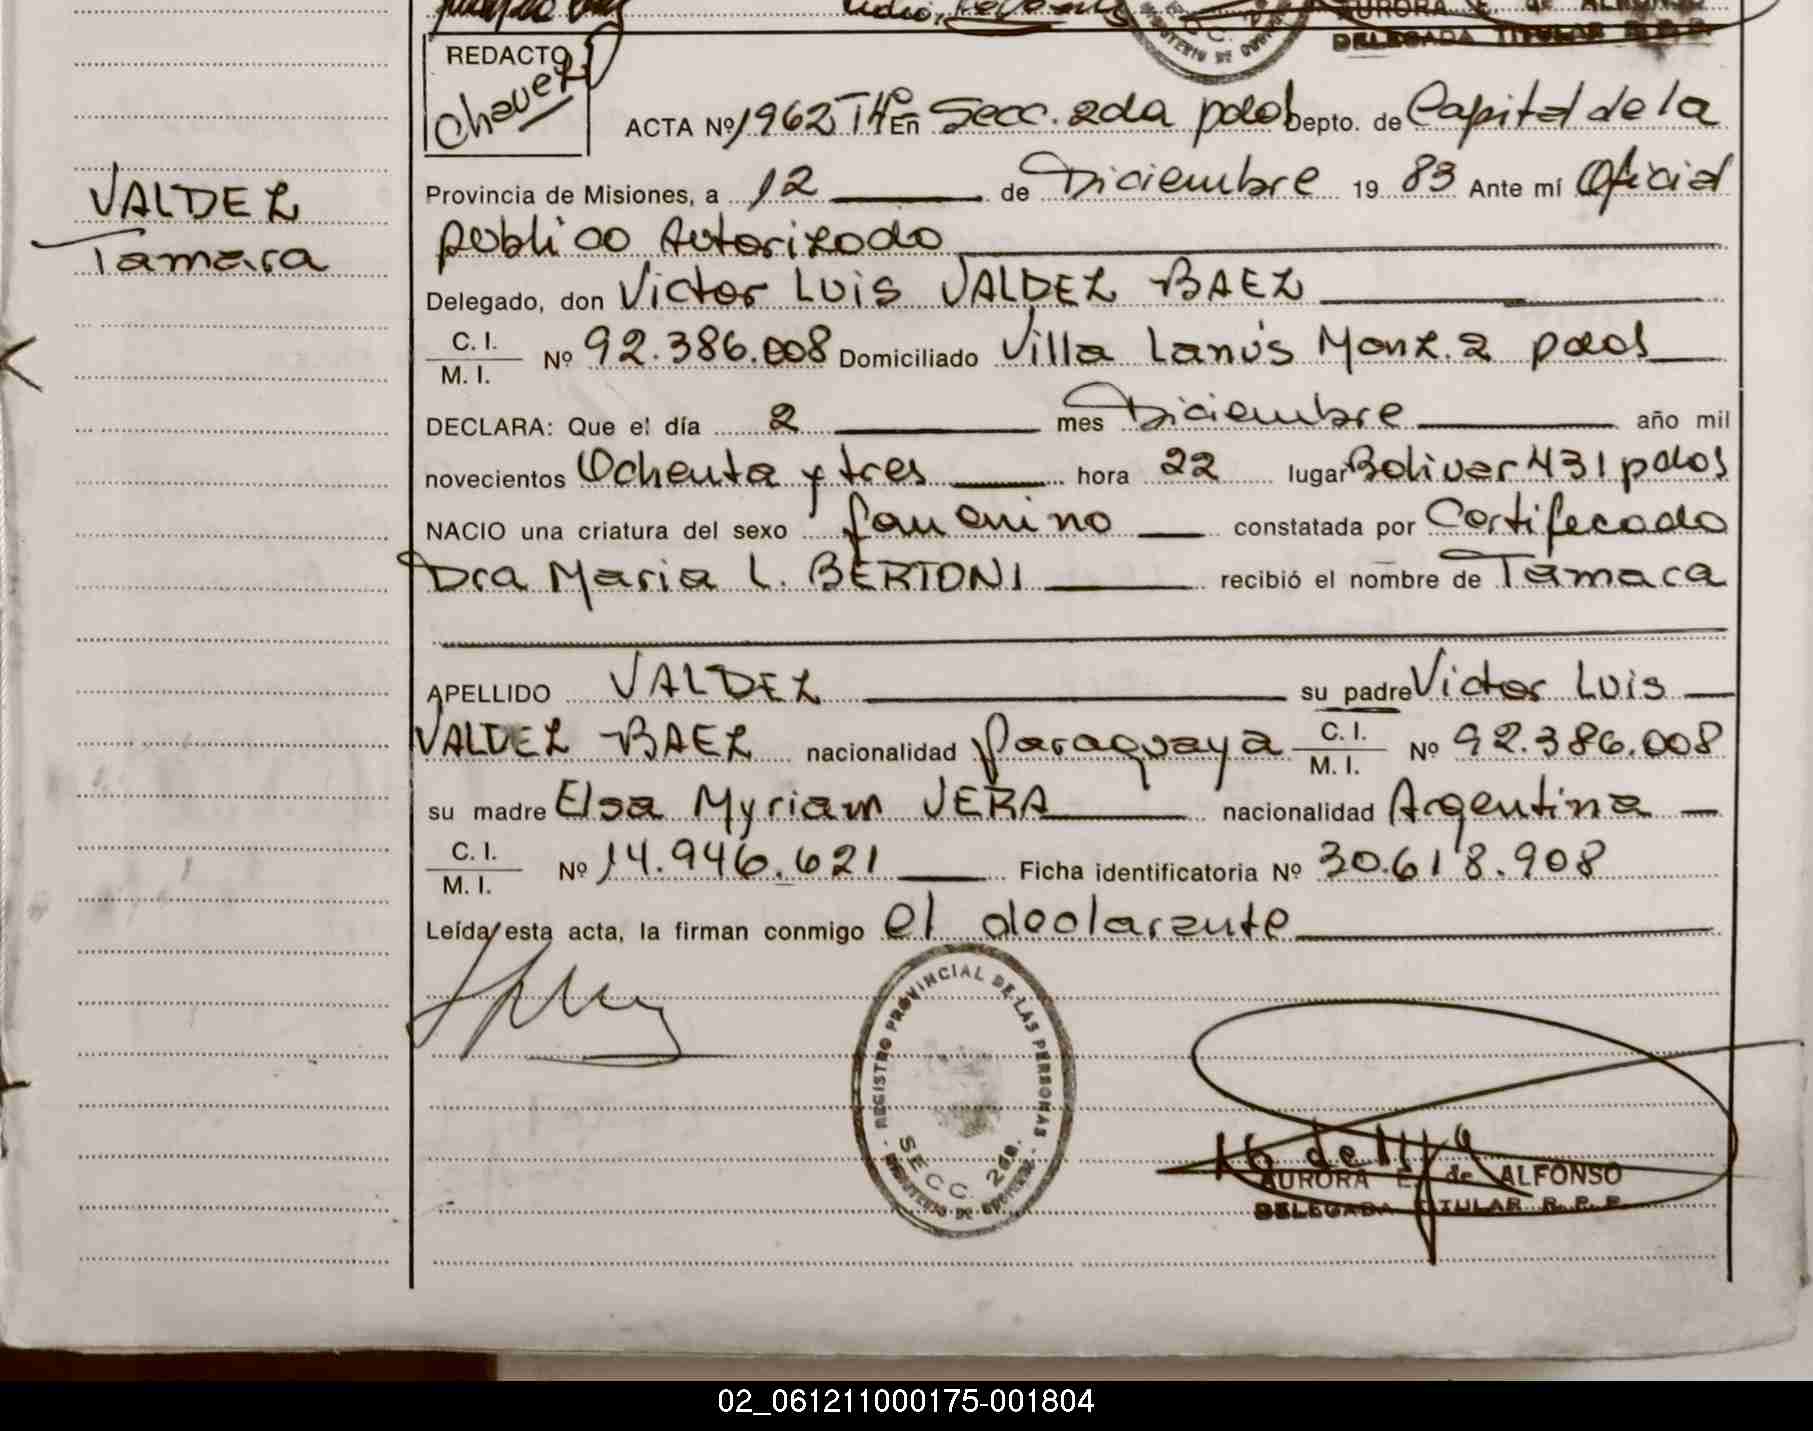 AURORA E. de ALFONSO
DELEGADA TITULAR R.P.P.
REDACTO
Chavez
ACTA Nº 1962 Tº En Secc. 2da pdas Depto. de Capital de la
VALDEZ
Tamara
Provincia de Misiones, a 12 de Diciembre 19 83 Ante mí Oficial
publico Autorizado
Delegado, don Victor Luis VALDEZ BAEZ
C. I.
M. I.
Nº 92.386.008 Domiciliado Villa Lanús Manz. 2 pdas
DECLARA: Que el día 2 mes Diciembre año mil
novecientos Ochenta y tres hora 22 lugar Bolivar 431 pdas
NACIO una criatura del sexo femenino constatada por Certificado
Dra Maria L. BERTONI recibió el nombre de Tamara
APELLIDO VALDEZ su padre Victor Luis
VALDEZ BAEZ nacionalidad paraguaya C. I. M. I. Nº 92.386.008
su madre Elsa Myriam VERA nacionalidad Argentina
C. I.
M. I.
Nº 14.946.621 Ficha identificatoria Nº 30.618.908
Leída esta acta, la firman conmigo el declarante
REGISTRO PROVINCIAL DE LAS PERSONAS
SECC. 2da.
MINISTERIO DE GOBIERNO
AURORA E. de ALFONSO
DELEGADA TITULAR R. P. P.
02_061211000175-001804